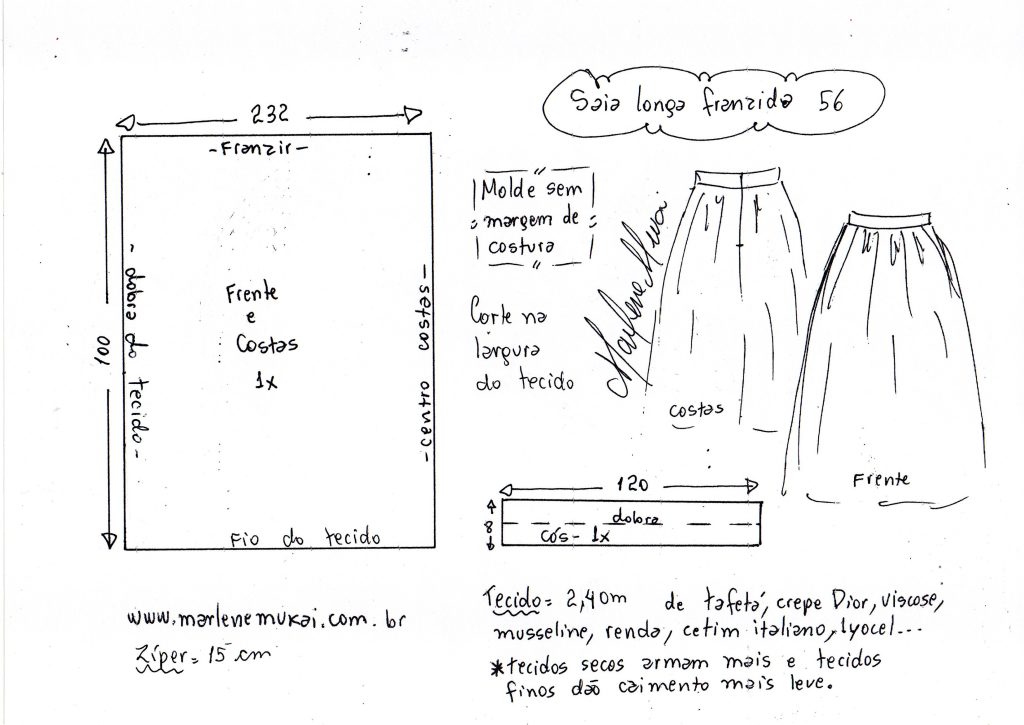 Saia longa franzida 56
232
-Franzir-
100
-dobra do tecido-
Frente
e
Costas
1x
-centro costas-
Fio do tecido
Molde sem
margem de
costura
Corte na
largura
do tecido
Marlene Mukai
costas
Frente
120
8
dobra
cós- 1x
www.marlenemukai.com.br
Zíper= 15 cm
Tecido= 2,40m de tafetá, crepe Dior, viscose,
musseline, renda, cetim italiano, lyocel...
*tecidos secos armam mais e tecidos
finos dão caimento mais leve.